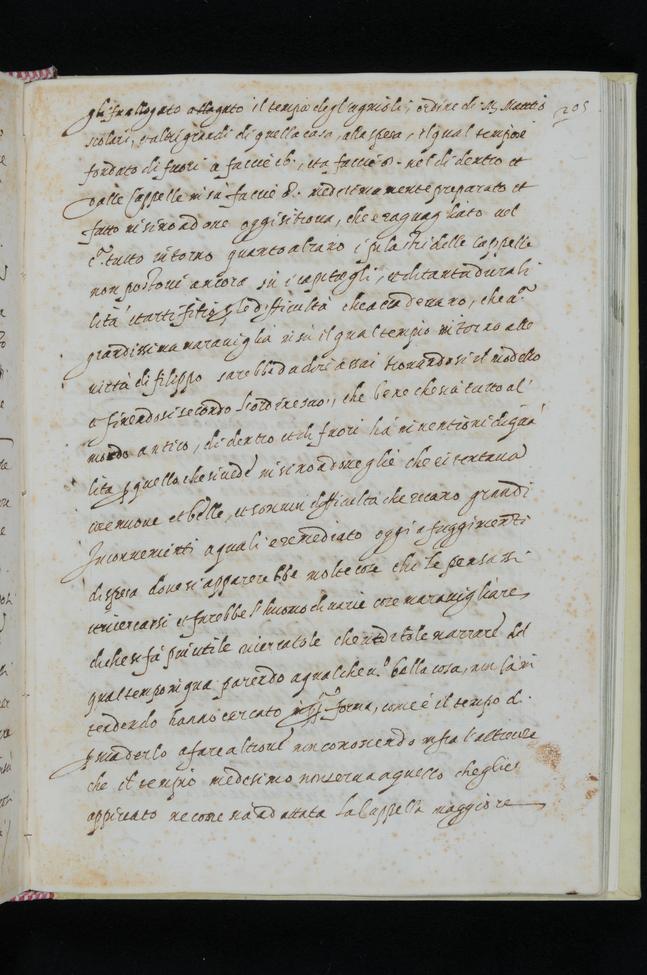 205
gli fu allogato allogato il tempio degl'agnioli, ordine di M. Matteo
scolari, et altri grandi di quella casa, alla spesa, il qual tempio è
fondato di fuori a faccie ib, et a faccie 8. nel di dentro et
dalle Cappelle in sù faccie 8. medesimamente preparato et
fatto insino ad one oggi si truova, che è raguagliato nel
tutto intorno quanto alzano i pilastri delle cappelle
non postovi ancora sù i capitegli, et di tanta durali
lità et artifitij le difficultà che accadevano, che
grandissima maraviglia in sù il qual tempio intorno alle
nittà di filippo sarebbe da dire assai trovandosi il modello
et finendosi secondo l'ordine suo, che bene che sia tutto al
modo antico, di dentro et di fuori hà inventioni di qua
lità quello che si vede insino ad one gliè che ei tentava
cose nuove et belle, et con ni difficultà che recano grandi
Inconvenienti a quali è remediato oggi a fuggimenti
di spesa dove si apparerebbe molte cose chi le pensassi
et ricercarsi et farebbe l'huomo di varie cose maravigliare
di che si fà più utile ricercatole che udirtele narrare del
qual tempo in qua parendo a qualche bella cosa, non la in
tendendo hanno cercato forma, come è il tempo d.
prenderlo a fare altrove non conoscendo infra l'altre cose
che il tempio medesimo non serva a quello che gliè
appiccato ne come si adattata la Cappella maggiore